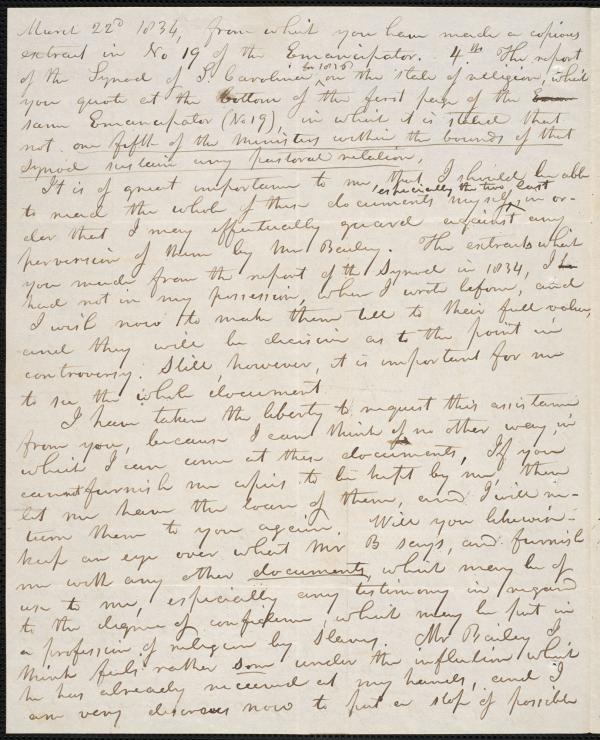 March 22d 1834, from which you have made a copious
extract in No 19 of the Emancipator. 4th The report
of the Synod of S. Carolina, in 1826 on the state of religion, which
you quote at the bottom of the first page of the
same Emancipator (No 19), in which it is stated that
not one fifth of the ministers within the bounds of that
Synod sustain any pastoral relation,
It is of great importance to me, that I should be able
to read the whole of these documents, especially the two last myself, in or-
der that I may effectually guard against any
perversion of them by Mr Bailey. The extracts which
you made from the report of the Synod in 1834, I
had not in my possession, when I wrote before, and
I wish now to make them tell to their full value,
and they will be decisive as to the point in
controversy. Still, however, it is important for me
to see the whole document.
I have taken the liberty to request this assistance
from you, because I can think of no other way, in
which I can come at these documents, If you
cannot furnish me copies to be kept by me, then
let me have the loan of them, and I will re-
turn them to you again. Will you likewise
keep an eye over what Mr B says, and furnish
me with any other documents, which may be of
use to me, especially any testimony in regard
to the degree of confidence, which may be put in
a profession of religion by slaves. Mr Bailey I
think feels rather sore under the infliction which
he has already received at my hands, and I
am very desirous now to put a stop if possible